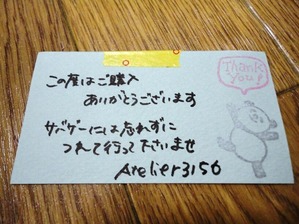 Thank you!
この度はご購入
ありがとうございます
サバゲーには忘れずに
つれて行って下さいませ
Atelier3156